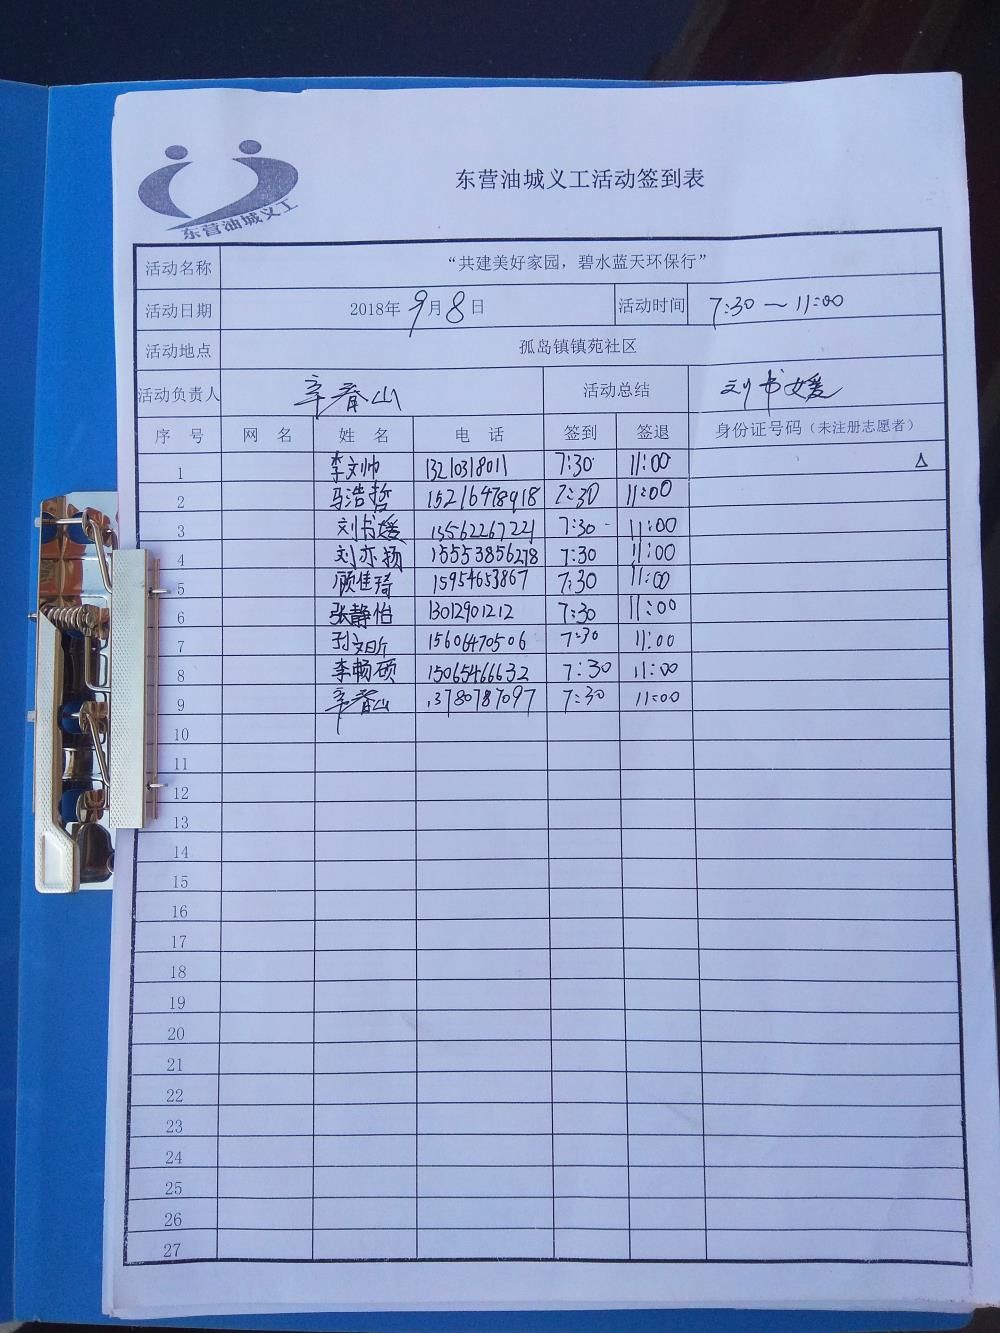 东营油城义工
东营油城义工活动签到表
活动名称 “共建美好家园，碧水蓝天环保行”
活动日期 2018年9月8日 活动时间 7:30～11:00
活动地点 孤岛镇镇苑社区
活动负责人 辛春山 活动总结 刘书媛
序 号 网 名 姓 名 电 话 签到 签退 身份证号码（未注册志愿者）
1 李文帅 13210318011 7:30 11:00 △
2 马浩哲 15216478918 7:30 11:00
3 刘书媛 15562267221 7:30 11:00
4 刘亦扬 15553856278 7:30 11:00
5 顾佳琦 15954653867 7:30 11:00
6 张静怡 13012901212 7:30 11:00
7 孙文昕 15606470506 7:30 11:00
8 李畅硕 15065466632 7:30 11:00
9 辛春山 13780787097 7:30 11:00
10
11
12
13
14
15
16
17
18
19
20
21
22
23
24
25
26
27